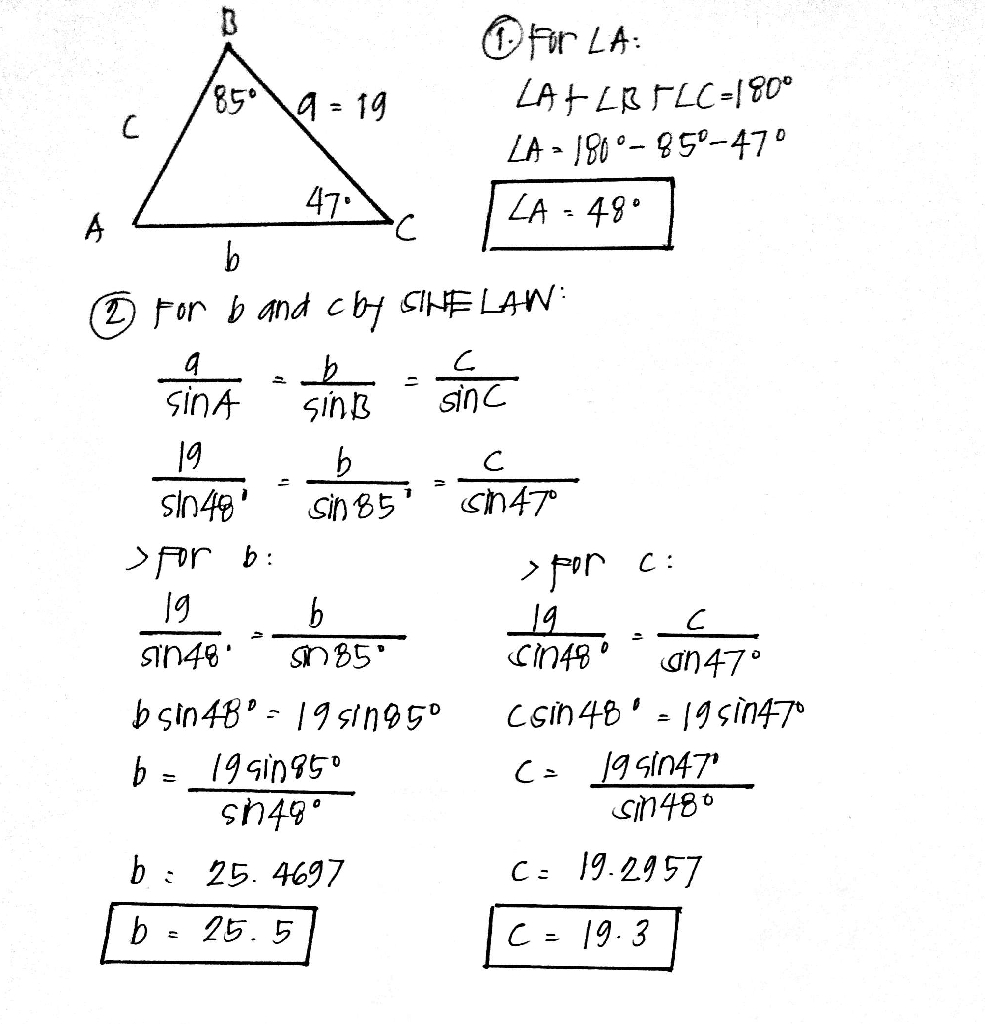 B
① For ∠A:
85° a = 19
∠A + ∠B + ∠C = 180°
c
∠A = 180° - 85° - 47°
47°
∠A = 48°
A C
b
② For b and c by SINE LAW:
a/sin A = b/sin B = c/sin C
19/sin 48° = b/sin 85° = c/sin 47°
> For b:
19/sin 48° = b/sin 85°
b sin 48° = 19 sin 85°
b = 19 sin 85°/sin 48°
b = 25.4697
b = 25.5
> For c:
19/sin 48° = c/sin 47°
c sin 48° = 19 sin 47°
c = 19 sin 47°/sin 48°
c = 19.2957
c = 19.3